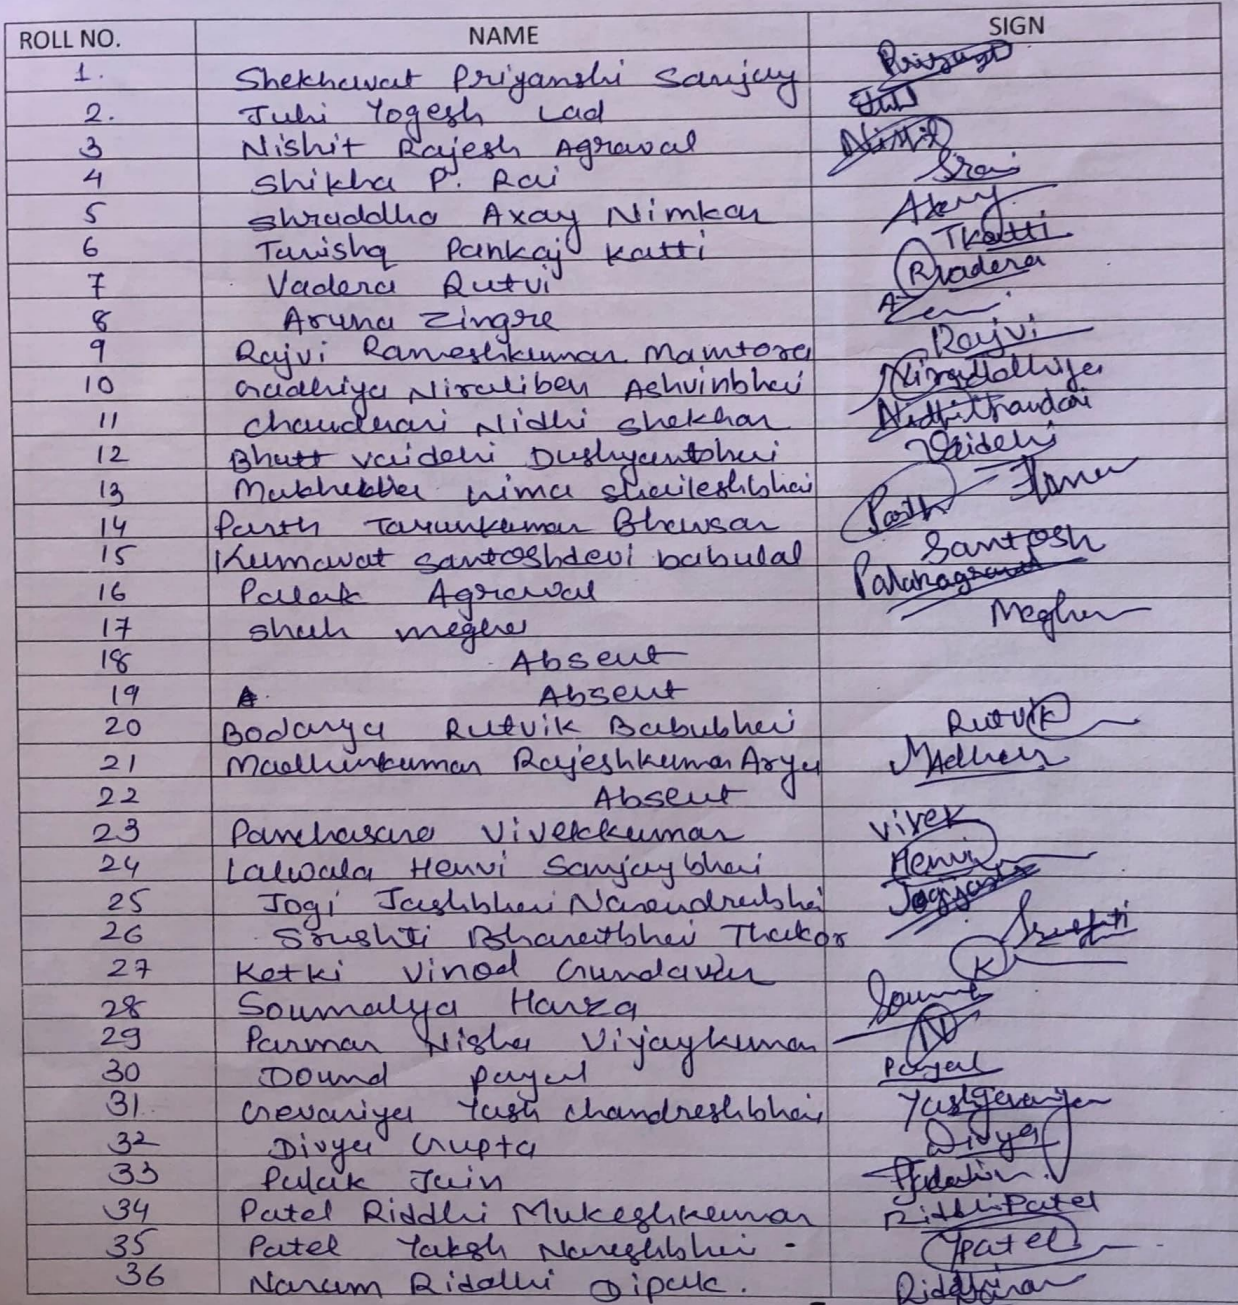 ROLL NO. NAME SIGN
1. Shekhawat Priyanshi Sanjay
2. Juhi Yogesh Lad Juhi
3 Nishit Rajesh Agrawal Nishit
4 Shikha P. Rai Srai
5 Shraddha Axay Nimkar Axay
6 Tanishq Pankaj Katti TKatti
7 Vadera Rutvi RVadera
8 Aruna Zingre
9 Rajvi Rameshkumar Mamtora Rajvi
10 Gadhiya Niraliben Ashvinbhai
11 Chaudhari Nidhi Shekhar Nidhi Chaudari
12 Bhatt Vaidehi Dushyantbhai Vaidehi
13 Hima Shaileshbhai
14 Parth Tarunkumar Bhavsar Parth
15 Kumawat Santoshdevi babulal Santosh
16 Palak Agrawal Palakagrawal
17 Shah Megha Megha
18 Absent
19 A. Absent
20 Bodarya Rutvik Babubhai Rutvik
21 Madhurkumar Rajeshkumar Arya Madhur
22 Absent
23 Panchasara Vivekkumar Vivek
24 Lalwala Henvi Sanjaybhai Henvi
25 Jogi Jashbhai Narendrabhai
26 Srushti Bharatbhai Thakor Srushti
27 Ketki Vinod Gundavar K
28 Soumalya Hazra
29 Parmar Nisha Vijaykumar N
30 Dound Payal Payal
31 Gevariya Yash Chandreshbhai Yashgevariya
32 Divya Gupta Divya
33 Palak Jain
34 Patel Riddhi Mukeshkumar Riddhi Patel
35 Patel Yaksh Nareshbhai - YPatel
36 Naram Riddhi Dipak.